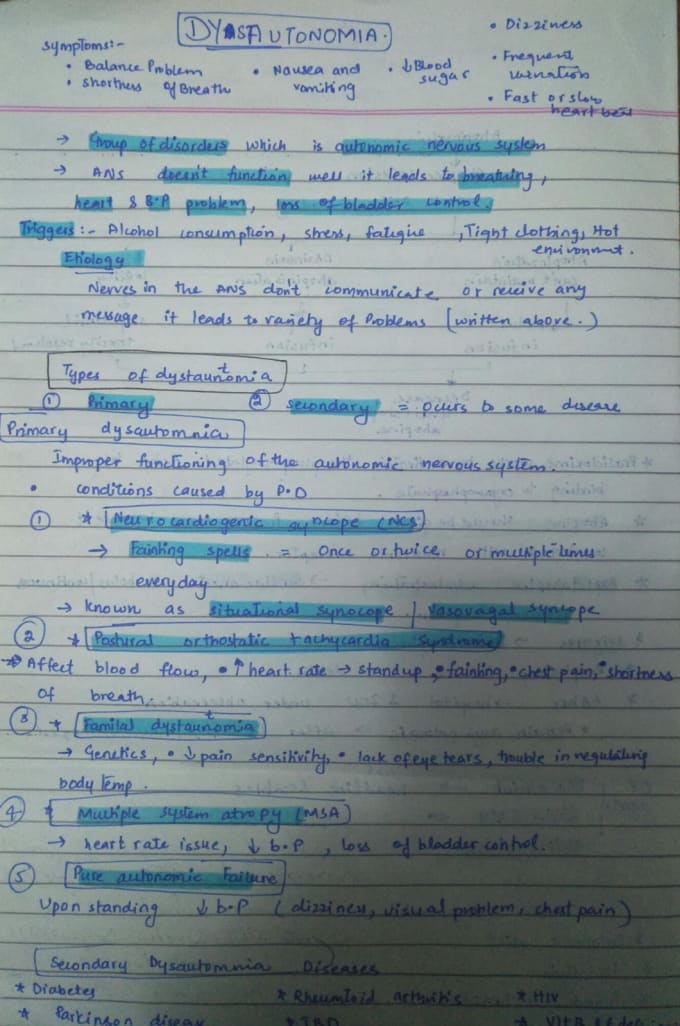 DYSAUTONOMIA.
Symptoms:-
• Balance Problem
• Shortness of Breath
• Nausea and vomiting
• ↓ Blood sugar
• Dizziness
• Frequent urination
• Fast or slow heart beat
→ Group of disorders which is autonomic nervous system
→ ANS doesn't function well it leads to breathing,
heart & B.P problem, loss of bladder control.
Triggers:- Alcohol consumption, stress, fatigue, Tight clothing, Hot
environment.
Etiology
Nerves in the ANS don't communicate or receive any
message it leads to variety of Problems (written above.)
Types of dystauntomia
① Primary ② secondary = occurs to some disease
Primary dysautomnia
Improper functioning of the autonomic nervous system.
• conditions caused by P.D
① * Neurocardiogenic syncope (NCS)
→ Fainting spells = Once or twice or multiple times
everyday
→ known as situational synocope / vasovagal syncope
② * Postural orthostatic tachycardia syndrome
* Affect blood flow, • ↑ heart rate → stand up, • fainting, • chest pain, • shortness
of breath.
③ * Familal dystauntomia
→ Genetics, • ↓ pain sensitivity, • lack of eye tears, trouble in regulating
body temp.
④ * Multiple system atropy (MSA)
→ heart rate issue, ↓ b.P, loss of bladder control.
⑤ Pure autonomic Failure
Upon standing ↓ b.P (dizziness, visual problem, chest pain)
Secondary Dysautomnia Diseases
* Diabetes * Rheumtoid arthritis * HIV
* Parkinson diseas * IBD * Vit B